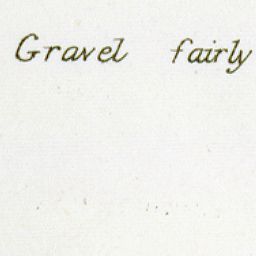 Gravel fairly